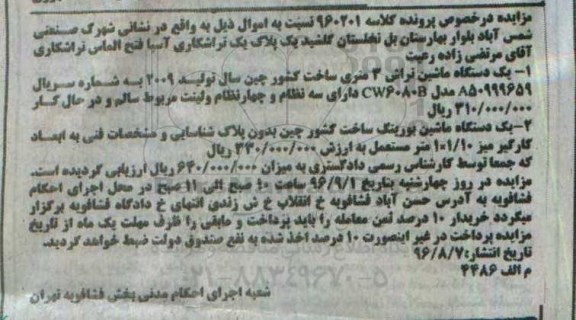 مزایده درخصوص پرونده کلاسه ۹۶۰۲۰۱ نسبت به اموال ذیل به واقع در نشانی شهرک صنعتی
شمس آباد بلوار بهارستان بل نخلستان گلشید یک پلاک یک تراشکاری آسیا فتح الماس تراشکاری
آقای مرتضی زاده رعیت
۱- یک دستگاه ماشین تراش ۳ متری ساخت کشور چین سال تولید ۲۰۰۹ به شماره سریال
۸۵۰۹۹۹۶۵۹ مدل CW۶۰۸۰B دارای سه نظام و چهارنظام ولینت مربوط سالم و در حال کار
۳۱۰/۰۰۰/۰۰۰ ریال
۲-یک دستگاه ماشین بورینگ ساخت کشور چین بدون پلاک شناسایی و مشخصات فنی به ابعاد
کارگیر میز ۱/۱۰*۱ متر مستعمل به ارزش ۳۳۰/۰۰۰/۰۰۰ ریال
که جمعا توسط کارشناس رسمی دادگستری به میزان ۶۴۰/۰۰۰/۰۰۰ ریال ارزیابی گردیده است.
مزایده در روز چهارشنبه بتاریخ ۹۶/۹/۱ ساعت ۱۰ صبح الی ۱۱ صبح در محل اجرای احکام
فشافویه به آدرس حسن آباد فشافویه خ انقلاب خ ش زندی انتهای خ دادگاه فشافویه برگزار
میگردد خریدار ۱۰ درصد ثمن معامله را باید پرداخت و مابقی را ظرف مهلت یک ماه از تاریخ
مزایده پرداخت در غیر اینصورت ۱۰ درصد اخذ شده به نفع صندوق دولت ضبط خواهد گردید.
تاریخ انتشار: ۹۶/۸/۷
م الف ۴۴۸۶
شعبه اجرای احکام مدنی بخش فشافویه تهران